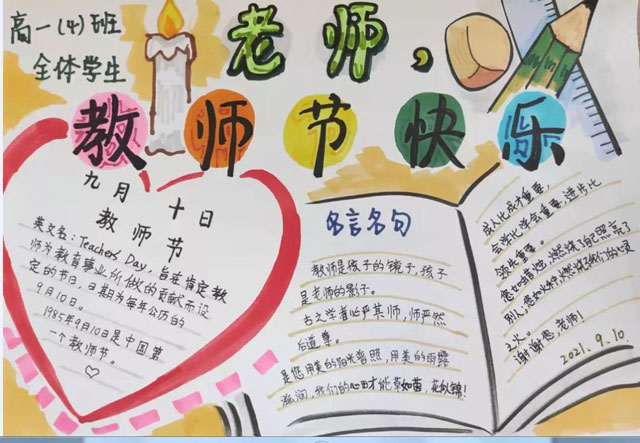 高一(4)班
全体学生
老师,
教师节快乐
九月十日
教师节
英文名:Teachers' Day,旨在肯定教
师为教育事业所做的贡献而设
定的节日,日期为每年公历的
9月10日。
1985年9月10日是中国第
一个教师节。
名言名句
教师是孩子的镜子,孩子
是老师的影子。
古之学者必严其师,师严然
后道尊
是您用美的阳光普照,用美的雨露
滋润,我们的心田才能草如茵,花似锦!
成人比成才重要,
会学比学会重要,进步比
领先重要。
您如蜡烛,燃烧了自己照亮了
别人,您如火种,燃烧了我们的心灵
之火。
谢谢您,老师!
2021.9.10